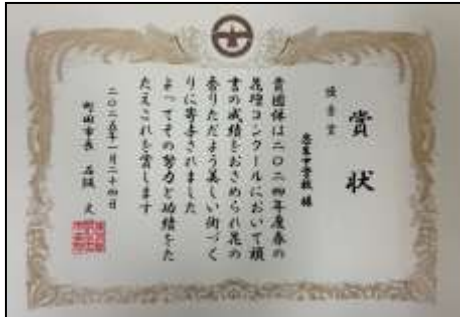 賞状
優秀賞
忠生中学校 様
貴団体は二〇二四年度春の
花壇コンクールにおいて頭
書の成績をおさめられ花の
香りただよう美しい街づく
りに寄与されました
よってその努力と功績をた
たえこれを賞します
二〇二五年一月二十四日
町田市長 石阪 丈